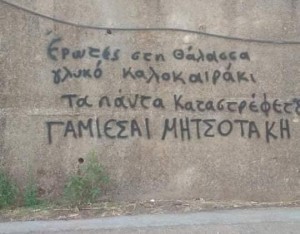 Ερωτές στη θάλασσα
γλυκό καλοκαιράκι
τα πάντα καταστρέφετε
ΓΑΜΙΕΣΑΙ ΜΗΤΣΟΤΑΚΗ